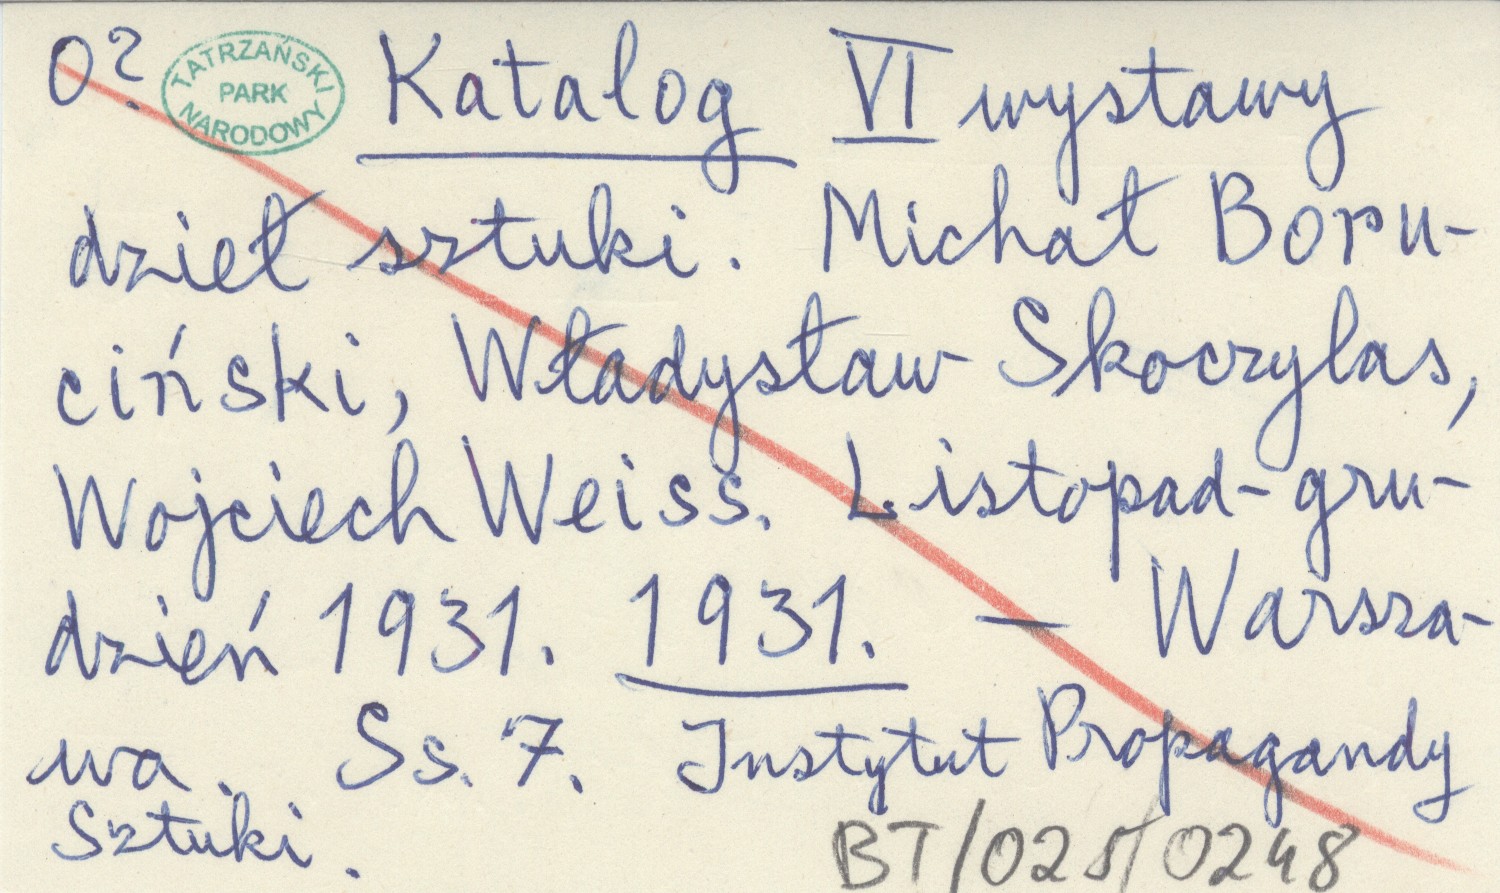 O?
TATRZAŃSKI
PARK
NARODOWY
Katalog VI wystawy
dzieł sztuki. Michał Boru-
ciński, Władysław Skoczylas,
Wojciech Weiss. Listopad-gru-
dzień 1931. 1931. — Warsza-
wa. Ss. 7. Instytut Propagandy
Sztuki.
BT/025/0248